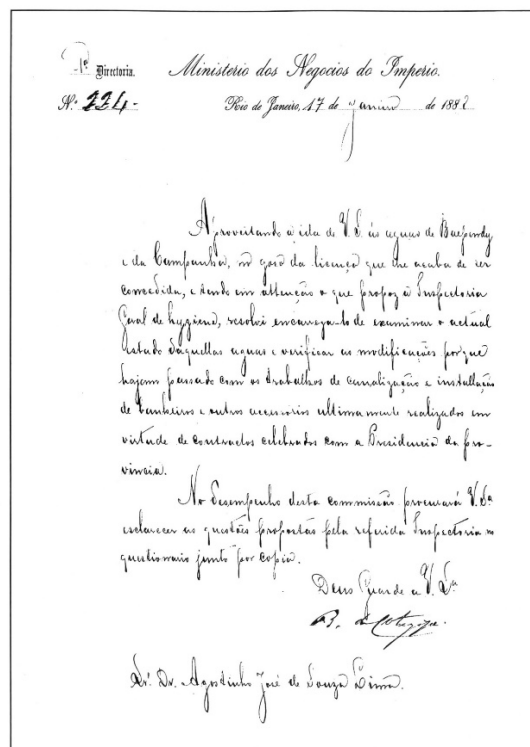 1ª Directoria. Ministerio dos Negocios do Imperio.
Nº 224- Rio de Janeiro, 17 de janeiro de 188
Aproveitando a ida de V. S. ás aguas de Baependy
e da Campanha, no goso da licença que lhe acaba de ser
concedida, e tendo em attenção o que propoz a Inspectoria
Geral de hygiene, resolvi encarrega-lo de examinar o actual
estado daquellas aguas e verificar as modificações por que
hajam passado com os trabalhos de canalização e installação
de banheiros e outros accessorios ultimamente realizados em
virtude de contractos celebrados com a Presidencia da pro-
vincia.
No desempenho desta commissão procurará V. Sª
esclarecer as questões propostas pela referida Inspectoria no
questionario junto por copia.
Deus Guarde a V. Sª
B. de Cotegipe.
Sr. Dr. Agostinho José de Souza Lima.